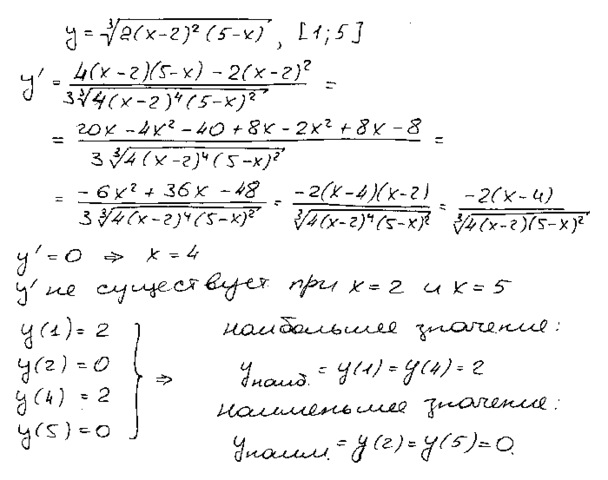 y = ∛(2(x-2)²(5-x)), [1;5]
y' = (4(x-2)(5-x) - 2(x-2)²) / (3∛(4(x-2)⁴(5-x)²)) =
= (20x - 4x² - 40 + 8x - 2x² + 8x - 8) / (3∛(4(x-2)⁴(5-x)²)) =
= (-6x² + 36x - 48) / (3∛(4(x-2)⁴(5-x)²)) = (-2(x-4)(x-2)) / (∛(4(x-2)⁴(5-x)²)) = (-2(x-4)) / (∛(4(x-2)(5-x)²))
y' = 0 ⇒ x = 4
y' не существует при x = 2 и x = 5
y(1) = 2
y(2) = 0
y(4) = 2
y(5) = 0
} ⇒
наибольшее значение:
yнаиб. = y(1) = y(4) = 2
наименьшее значение:
yнаим. = y(2) = y(5) = 0.